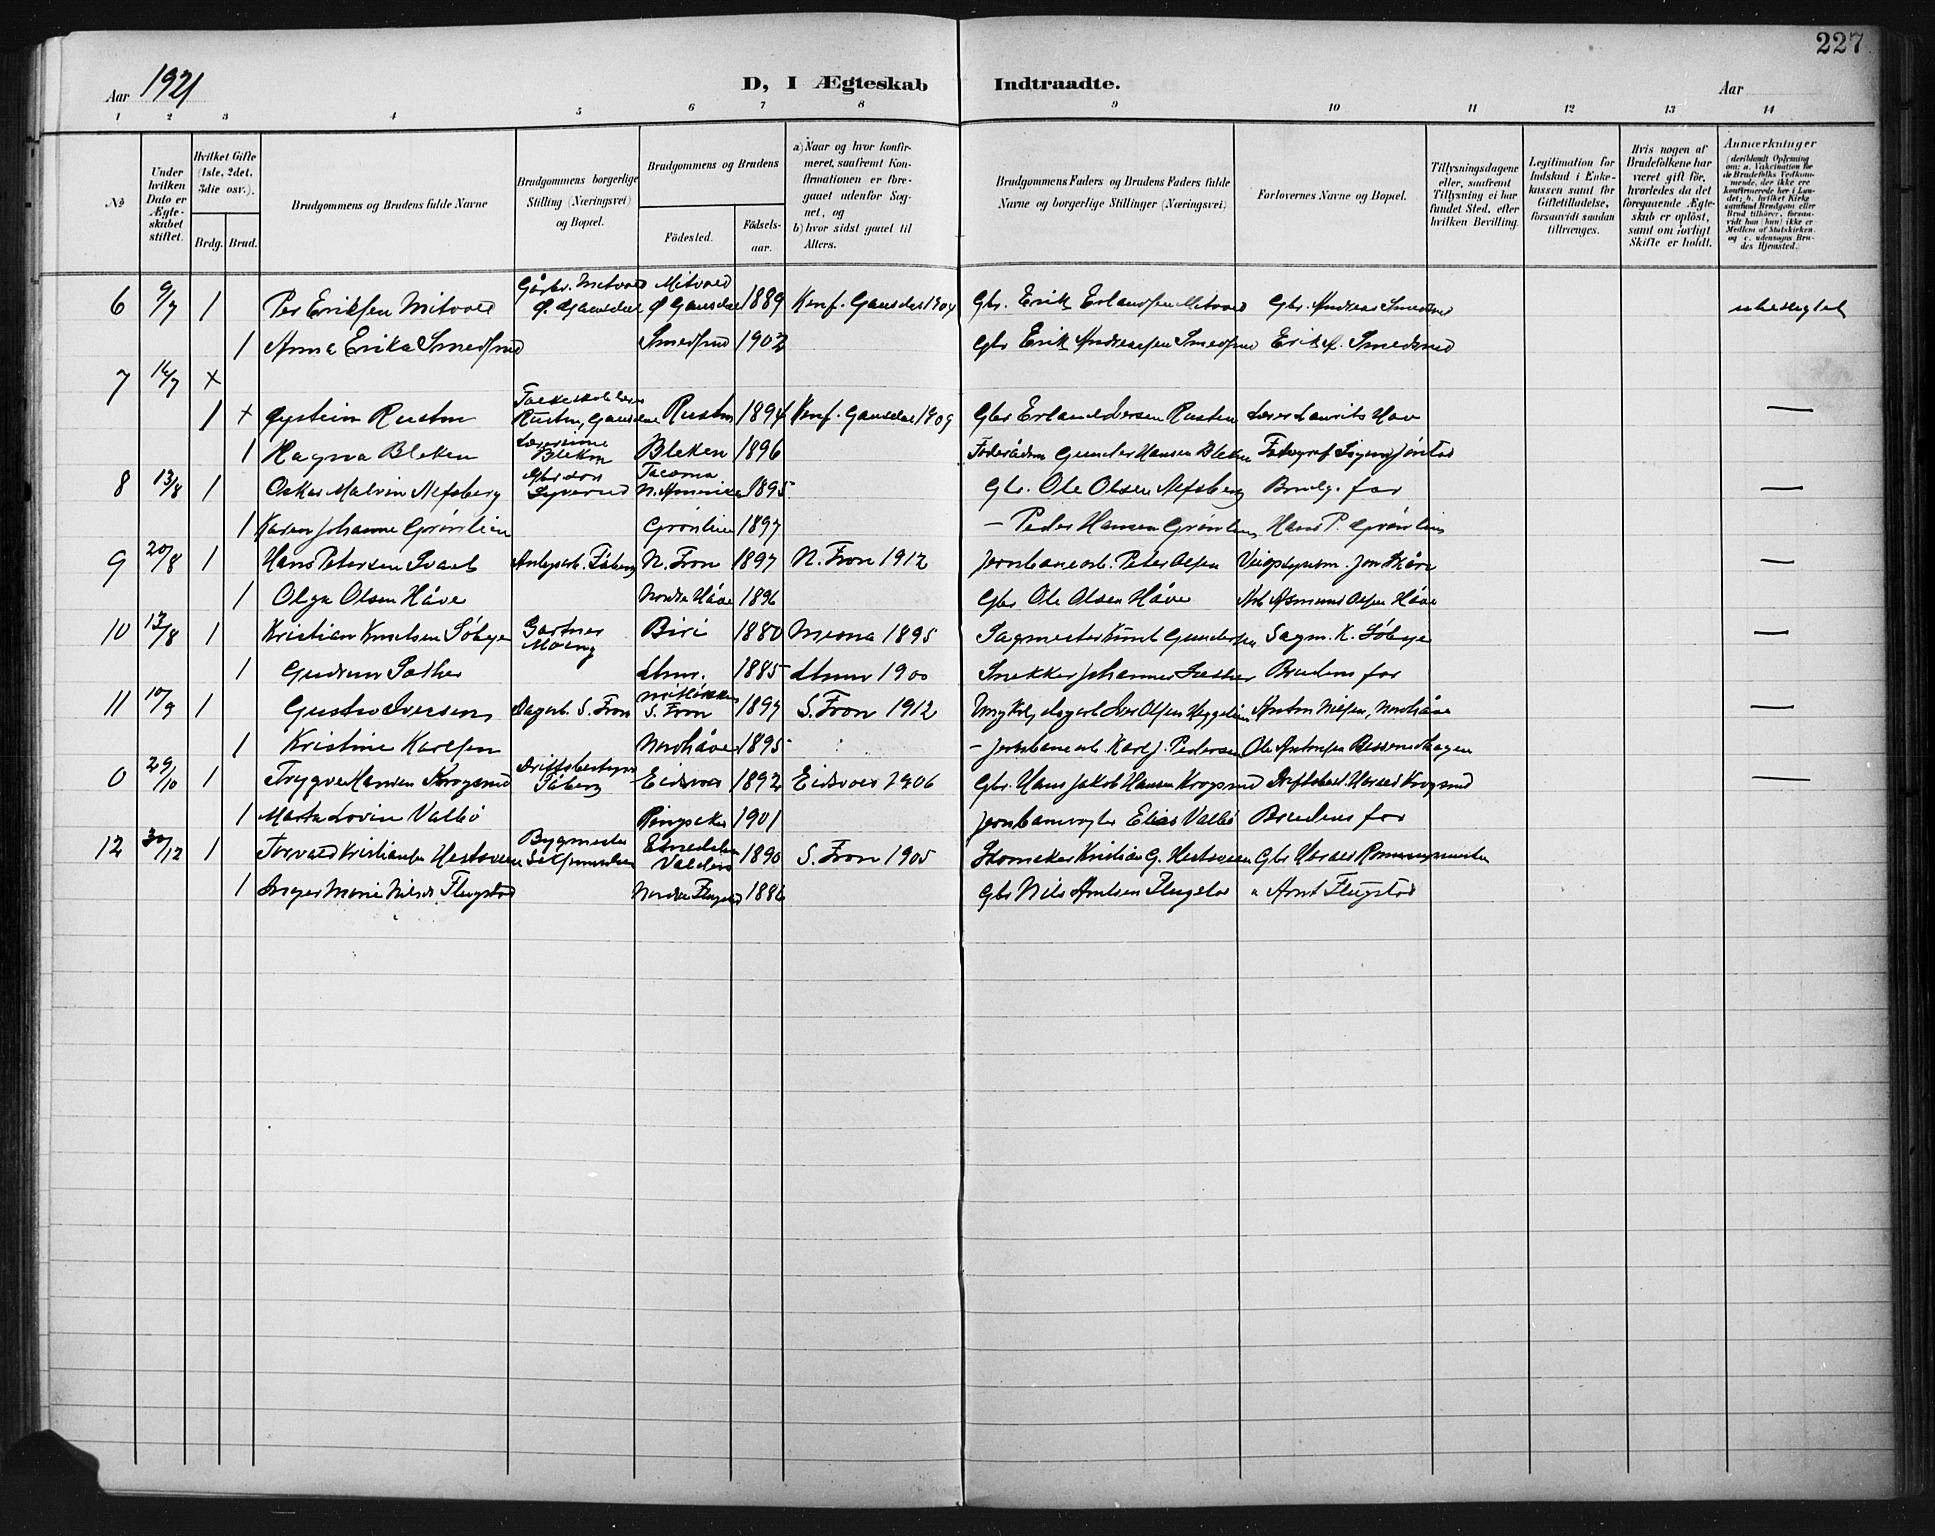 227
Aar 1921 D, I Ægteskab Indtraadte. Aar
1 2 3 4 5 6 7 8 9 10 11 12 13 14
No
Under hvilken Dato er Ægteskabet stiftet.
Hvilket Gifte (1ste, 2det, 3die osv.).
Brdg. Brud.
Brudgommens og Brudens fulde Navne
Brudgommens borgerlige Stilling (Næringsvei) og Bopæl.
Brudgommens og Brudens
Födested. Födselsaar.
a) Naar og hvor konfirmeret, saafremt Konfirmationen er foregaaet udenfor Sognet, og
b) hvor sidst gaaet til Alters.
Brudgommens Faders og Brudens Faders fulde Navne og borgerlige Stillinger (Næringsvei)
Forlovernes Navne og Bopæl.
Tillysningsdagene eller, saafremt Tillysning ei har fundet Sted, efter hvilken Bevilling.
Legitimation for Indskud i Enkekassen samt for Giftetilladelse, forsaavidt saadan tiltrænges.
Hvis nogen af Brudefolkene har været gift för, hvorledes da det foregaaende Ægteskab er oplöst, samt om lovligt Skifte er holdt.
Anmærkninger
6 9/7 1 Per Eriksen Mitvoll Gårbr. Mitvold Ø. Gausdal Mitvold Ø Gausdal 1889 Konf. Gausdal 1904 Gbr. Erik Erlandsen Mitvold Gbr. Andreas Smedsrud ubeslegtet
1 Anna Erika Smedsrud Smedsrud 1902 Gbr Erik Andreassen Smedsrud Erik A. Smedsrud
7 14/7 x
1 x Øystein Rusten Rusten, Gausdal Rusten 1894 Konf. Gausdal 1909 Gbr Erland Iversen Rusten Lærer Laurits Hov —
1 Magna Bleken Lærerinne Bleken Bleken 1896 Föderådsm Gunder Hansen Bleken Fotograf
8 13/8 1 Oskar Malvin Nefsberg Gbr. sön Tacoma N. Amerika 1895 Gbr. Ole Olsen Nefsberg Brudg. far —
1 Karen Johanne Grönlien Grönlien 1897 — Peder Hansen Grönlien Hans P. Grönlien
9 20/8 1 Hans Petersen Anlegsarb. Fåberg N. Fron 1897 N. Fron 1912 Jernbanearb. Peter Olsen —
1 Olga Olsen Håve Nordre Håve 1896 Gbr Ole Olsen Håve Arb Asmund Olsen Håve
10 13/8 1 Kristian Knudsen Söbye Gartner Biri 1880 1895 Sagmester Knut Gundersen Sagm. K. Söbye —
1 Gudrun Sæther 1885 1900 Snekker Johannes Sæther Brudens far
11 10/9 1 Gustav Iversen Dagarb. S. Fron S. Fron 1897 S. Fron 1912 Iver Olsen Anton Nilsen, Nordhåve —
1 Kristine Karlsen Nordhåve 1895 — Jernbanearb Karl J. Pedersen Ole Antonsen
0 29/10 1 Trygve Hansen Krogsrud Driftsbestyrer Fåberg Eidsvold 1892 Eidsvold 1906 Gbr. Hans Jakob Hansen Krogsrud Driftsbest. Harald Krogsrud —
1 Marta Lovise Valbö Ringsaker 1901 Jernbanevogter Elias Valbö Brudens far
12 30/12 1 Torvald Kristiansen Hestsveen Bygmester Etnedalen Valdres 1890 S. Fron 1905 Skomaker Kristian G. Hestsveen Gbr Harald
1 Inger Marie Nilsd. Flugstad Nordre Flugstad 1886 Gbr Nils Arntsen Flugstad " Arnt Flugstad